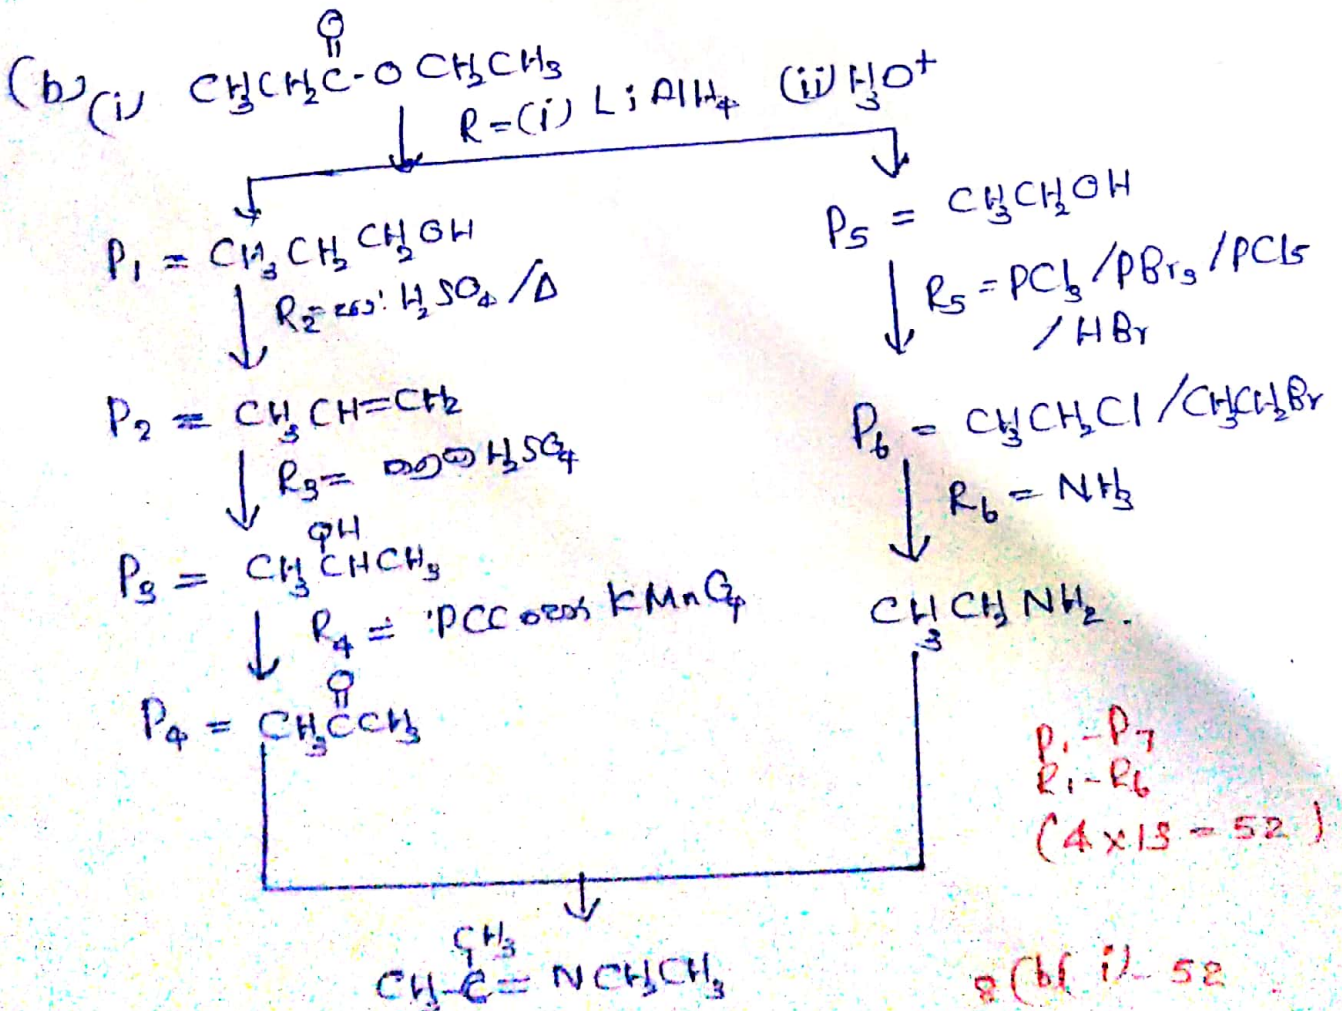 (b)(i) CH₃CH₂C(=O)-O CH₂CH₃
R=(i) LiAlH₄ (ii) H₃O⁺
P₁ = CH₃CH₂CH₂OH
R₂= H₂SO₄/Δ
P₂ = CH₃CH=CH₂
R₃= තනුක H₂SO₄
OH
P₃ = CH₃CHCH₃
R₄ = PCC හෝ KMnO₄
O
P₄ = CH₃CCH₃
P₅ = CH₃CH₂OH
R₅ = PCl₃/PBr₃/PCl₅
/HBr
P₆ = CH₃CH₂Cl/CH₃CH₂Br
R₆ = NH₃
CH₃CH₂NH₂.
P₁-P₇
R₁-R₆
(4x13 = 52)
CH₃
CH₃-C=NCH₂CH₃
8(b)(i)- 52